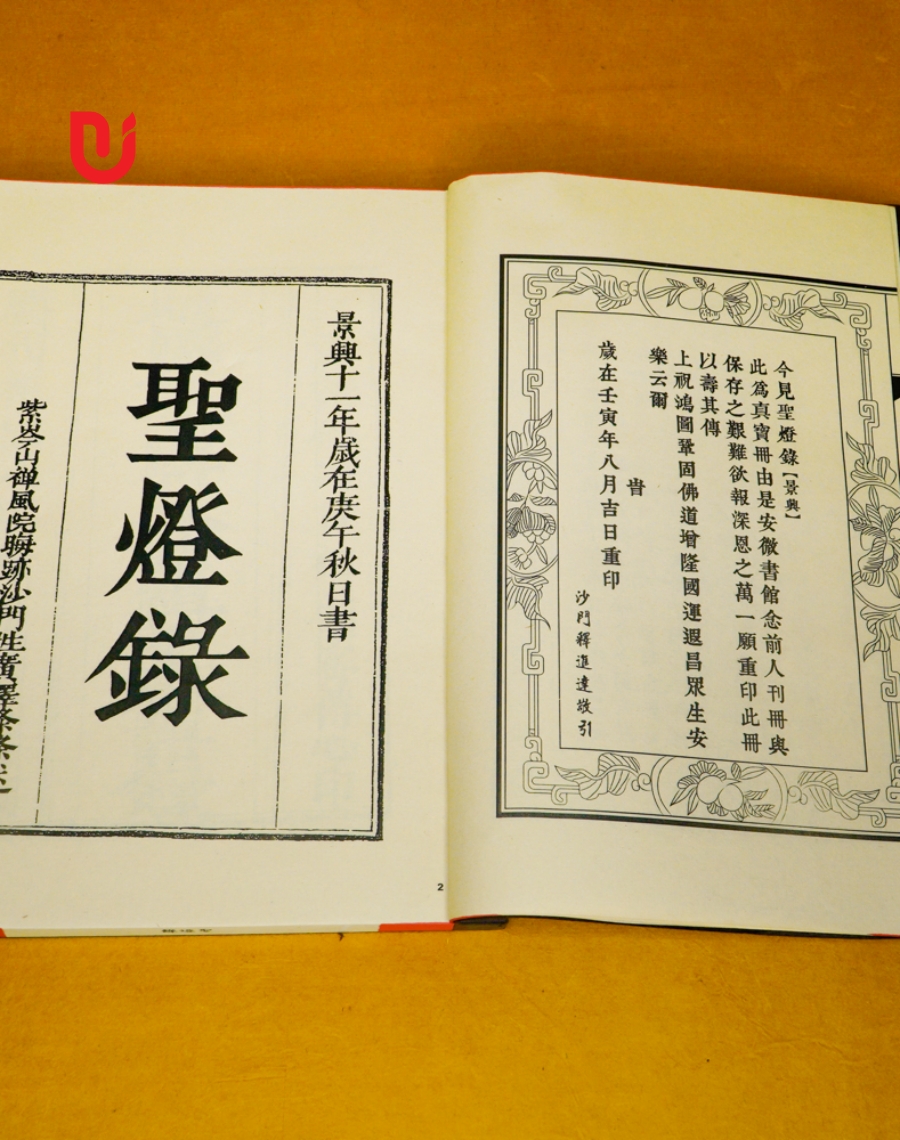 今見聖燈錄【景興】
此爲真寶冊由是安微書館念前人刊冊與
保存之艱難欲報深恩之萬一願重印此冊
以壽其傳
上祝鴻圖鞏固佛道增隆國運遐昌眾生安
樂云爾
旹
歲在壬寅年八月吉日重印
沙門釋進達敬引
景興十一年歲在庚午秋日書
聖燈錄
紫岺山禅風院晦跡沙門性廣釋
2